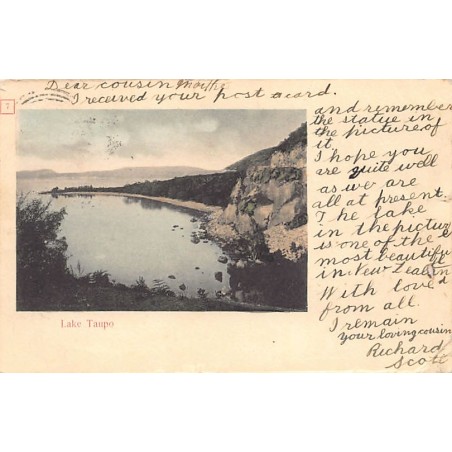 Dear cousin
I received your post acard.
7
and remember
the statue in
the picture of
it.
I hope you
are quite well
as we are
all at present.
The lake
in the picture
is one of the
most beautiful
in New Zealand
With love
from all.
I remain
your loving cousin
Richard
Scott
Lake Taupo